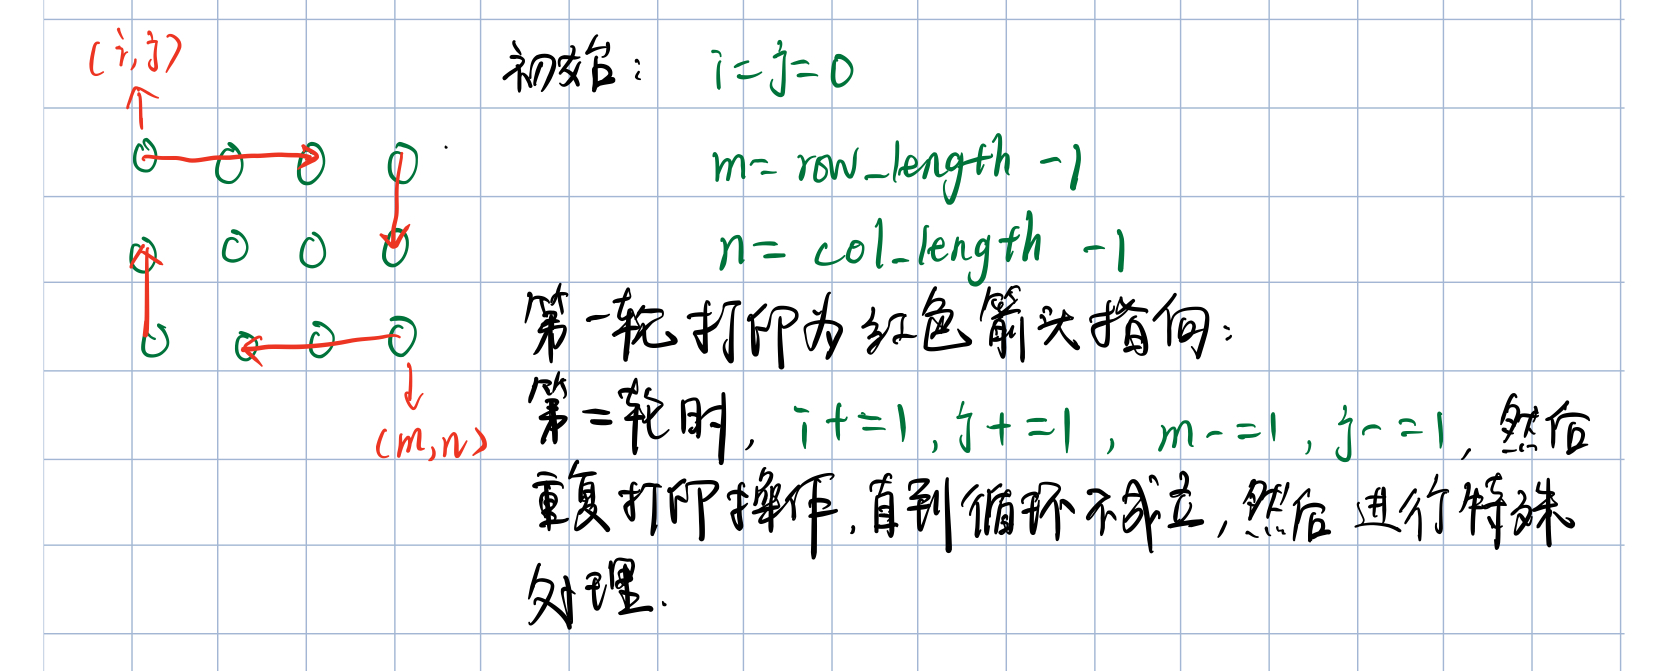 (i,j)
初始: i=j=0
m= row_length -1
n= col_length -1
第一轮打印为红色箭头指向:
第二轮时, i+=1, j+=1, m-=1, j-=1, 然后
(m,n)
重复打印操作,直到循环不成立,然后进行特殊
处理.